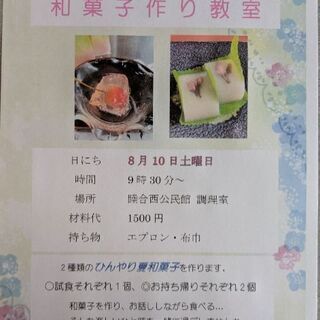 和菓子作り教室
日にち 8月10日土曜日
時間 9時30分～
場所 睦合西公民館 調理室
材料代 1500円
持ち物 エプロン・布巾
2種類のひんやり夏和菓子を作ります。
○試食それぞれ1個、◎お持ち帰りそれぞれ2個
和菓子を作り、お話ししながら食べる…